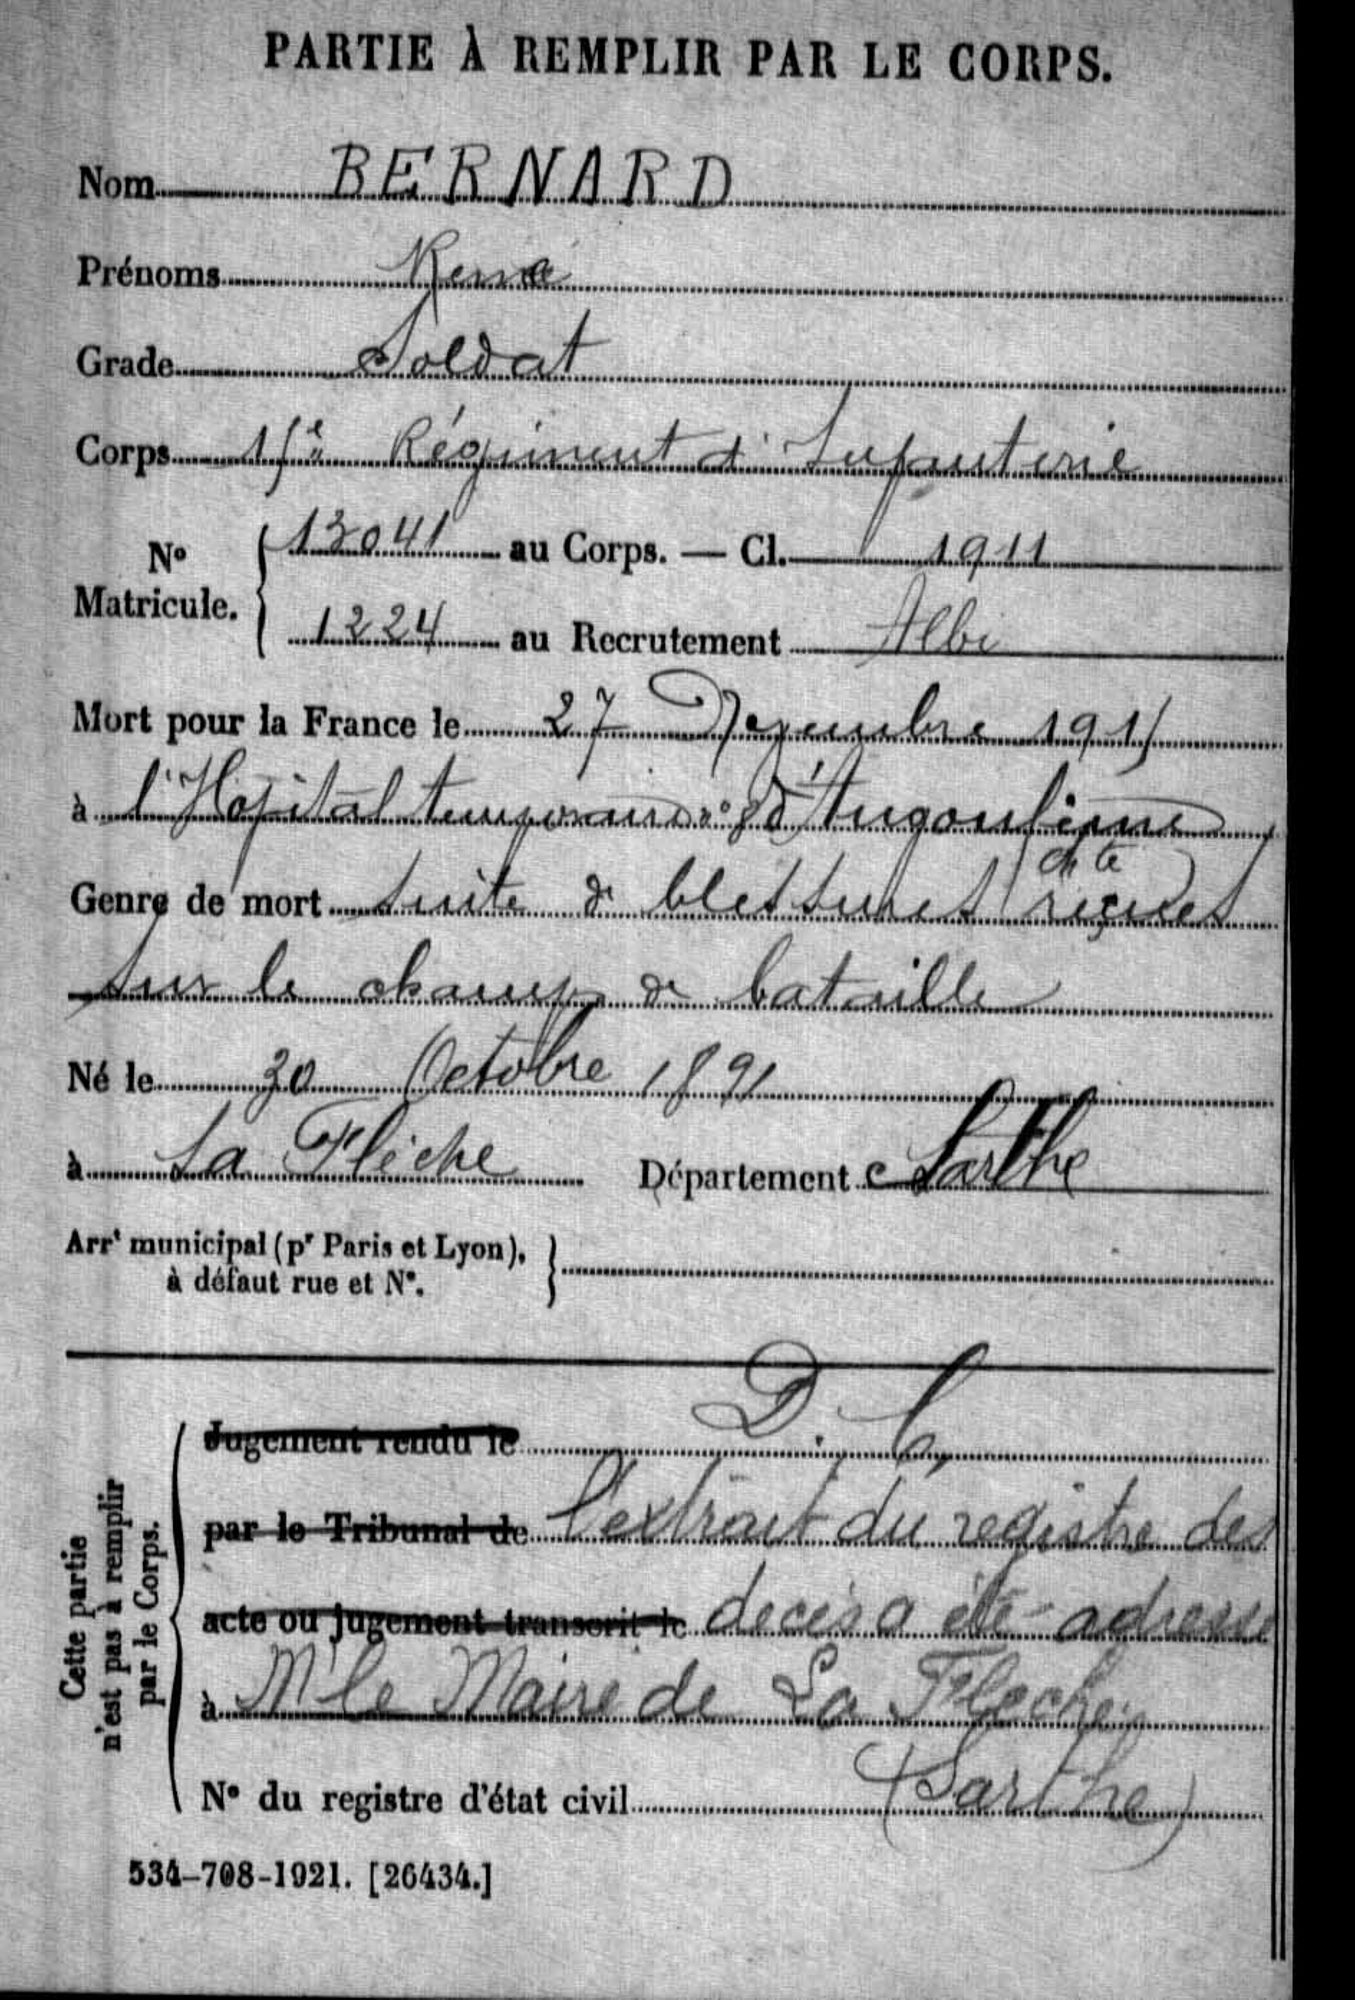 PARTIE À REMPLIR PAR LE CORPS.
Nom BERNARD
Prénoms René
Grade Soldat
Corps 15e Régiment d'Infanterie
N° Matricule. 13041 au Corps. — Cl. 1911
1224 au Recrutement Albi
Mort pour la France le 27 Novembre 1915
à l'Hôpital temporaire n° 8 d'Angoulême
Genre de mort suite de blessures reçues
sur le champ de bataille
Né le 30 Octobre 1891
à La Flèche Département Sarthe
Arrt municipal (pr Paris et Lyon),
à défaut rue et N°.
Cette partie
n'est pas à remplir
par le Corps.
Jugement rendu le D. C,
par le Tribunal de l'extrait du registre des
acte ou jugement transcrit le decès a été adressé
à Mr le Maire de La Fleche
N° du registre d'état civil (Sarthe)
534-708-1921. [26434.]